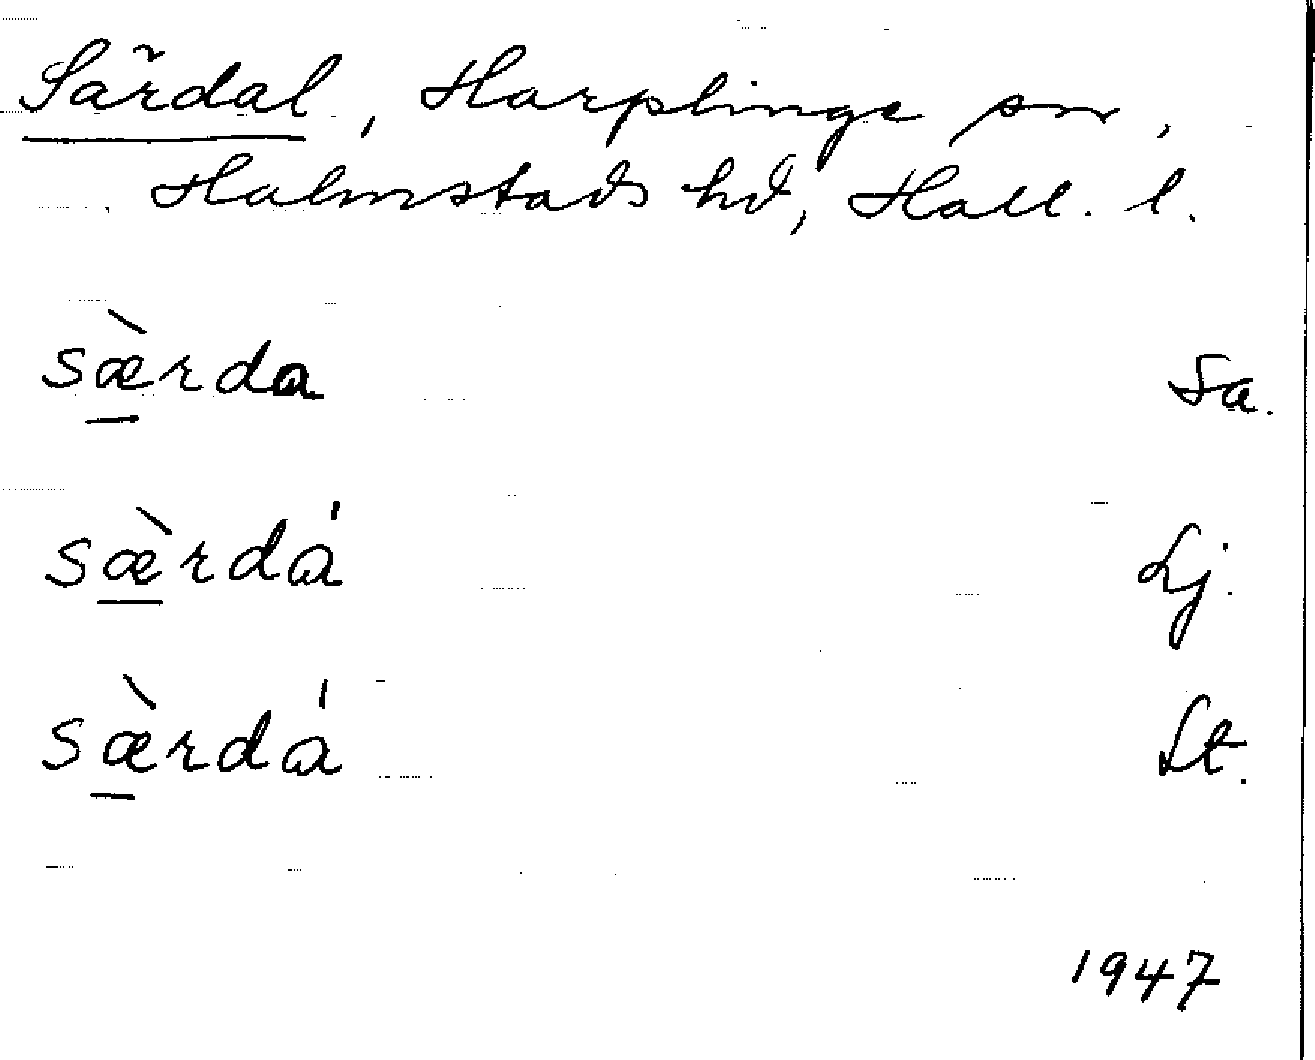 Särdal, Harplinge sn,
Halmstads hd, Hall. l.
sæ̀rda Sa.
sæ̀rdá Lj.
sæ̀rdá St.
1947